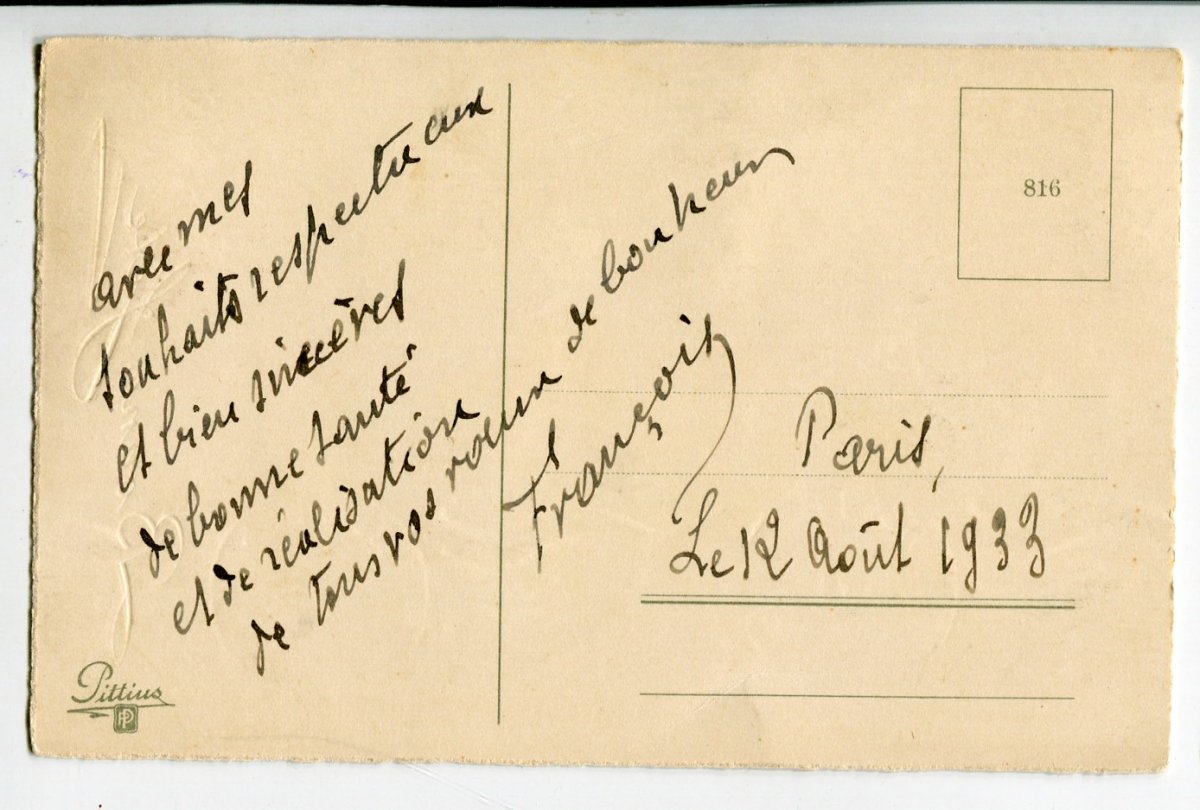 avec mes
souhaits respectueux
et bien sincères
de bonne santé
et de réalisation
de tous vos voeux de bonheur
François
Paris,
Le 12 Août 1933
816
Pittius
PP